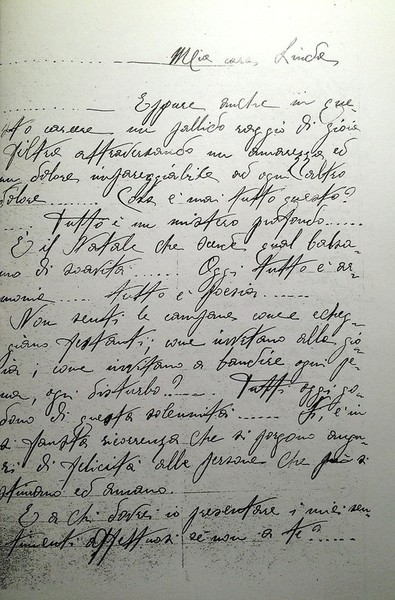 Mia cara Linda
Eppure anche in que
sto carcere un pallido raggio di gioia
filtra attraversando un amarezza ed
un dolore impareggiabile ad ogni altro
dolore ...... Cosa è mai tutto questo?
Tutto è un mistero profondo .....
È il Natale che scende qual balsa-
mo di soavità ...... Oggi tutto è ar-
monia .... tutto è poesia ......
Non senti le campane come echeg-
giano festanti; come invitano alla gio-
ia; come invitano a bandire ogni pe-
na, ogni disturbo? .... Tutti oggi go-
dono di questa solennità ..... Sì, è in
sì fausta ricorrenza che si porgono augu-
ri di felicità alle persone che più si
stimano ed amano.
E a chi dovrei io presentare i miei sen-
timenti affettuosi se non a te? ......